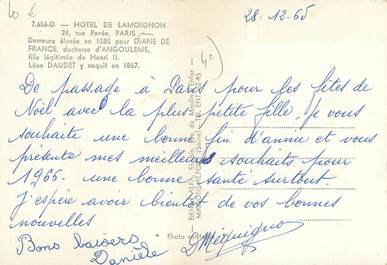 10 €
28.12.65
7.656-D — HOTEL DE LAMOIGNON
24, rue Pavée, PARIS
Demeure élevée en 1585 pour DIANE DE
FRANCE, duchesse d'ANGOULEME,
fille légitimée de Henri II.
Léon DAUDET y naquit en 1867.
De passage à Paris pour les fêtes de
Noël, avec la plus petite fille, je vous
souhaite une bonne fin d'année et vous
présente mes meilleurs souhaits pour
1966. une bonne santé surtout.
J'espère avoir bientôt de vos bonnes
nouvelles
Bons baisers
Danièle
Photo